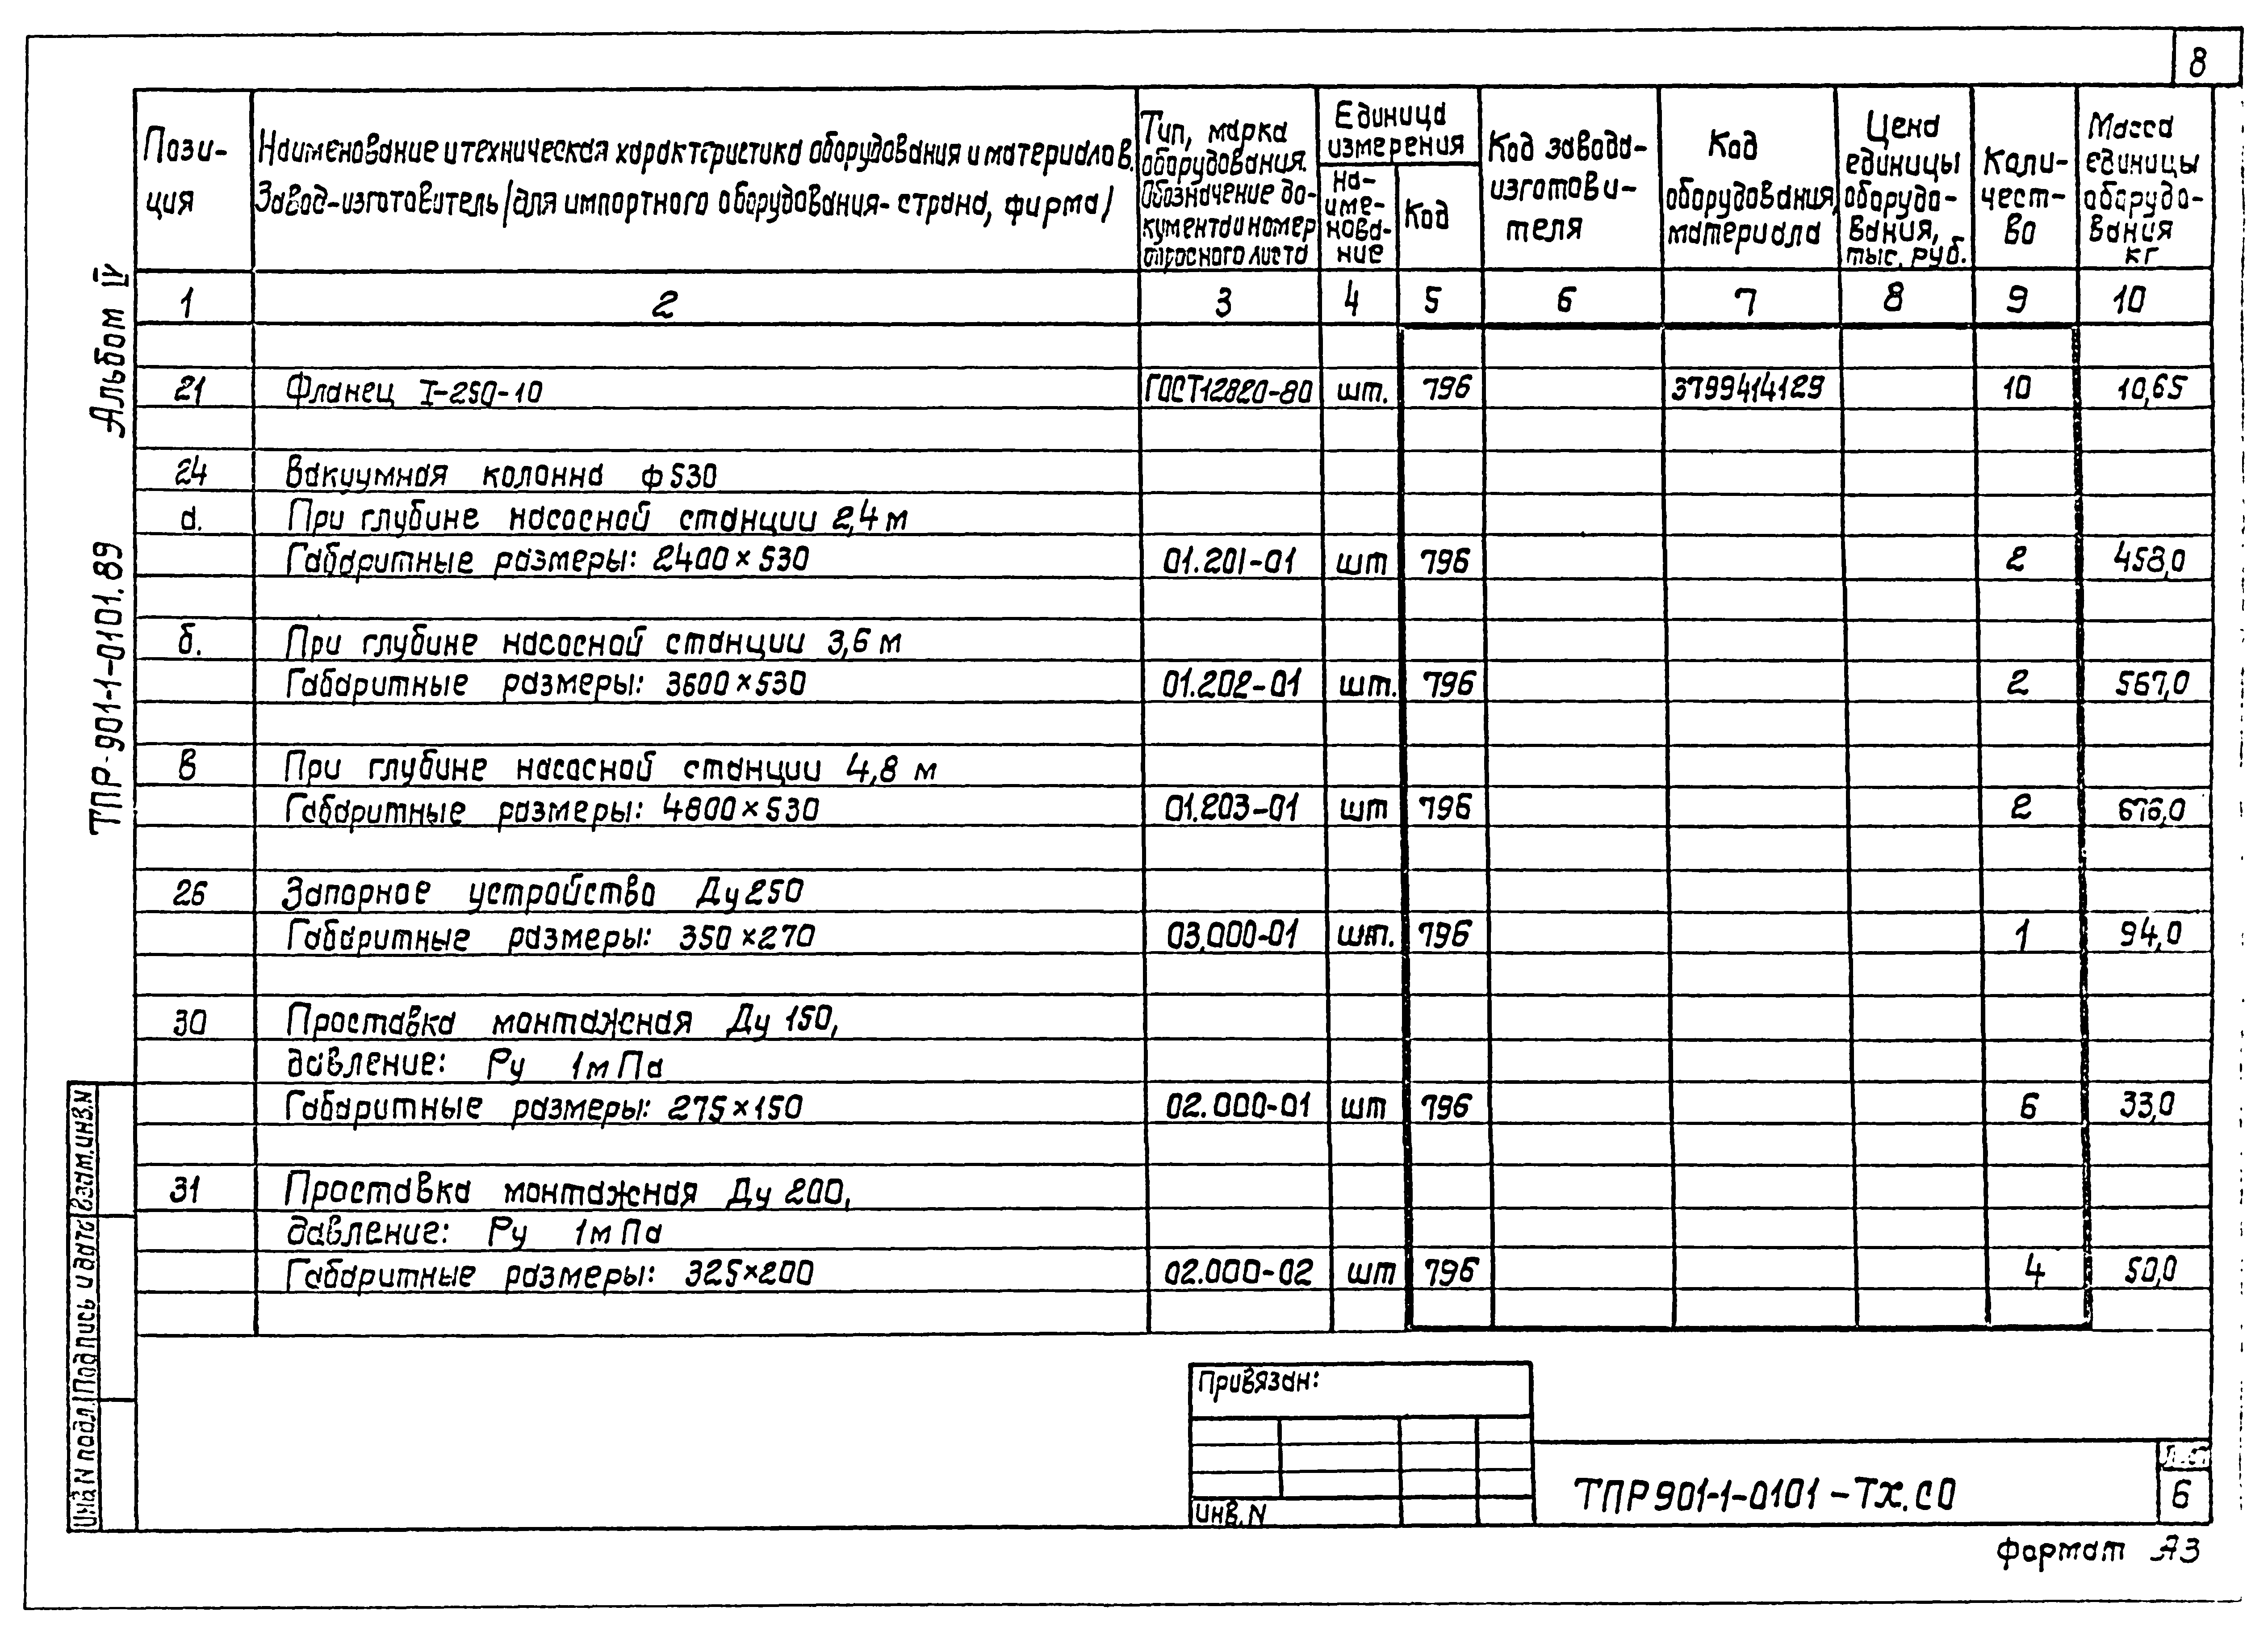 8
Пози-
ция
Наименование и техническая характеристика оборудования и материалов.
Завод-изготовитель /для импортного оборудования- страна, фирма/
Тип, марка
оборудования.
Обозначение до-
кумента и номер
опросного листа
Единица
измерения
На-
име-
нова-
ние
Код
Код завода-
изготови-
теля
Код
оборудования,
материала
Цена
единицы
оборудо-
вания,
тыс. руб.
Коли-
чест-
во
Масса
единицы
оборудо-
вания
кг
1 2 3 4 5 6 7 8 9 10
21 Фланец I-250-10 ГОСТ12820-80 шт. 796 3799414129 10 10,65
24 Вакуумная колонна ф530
а. При глубине насосной станции 2,4 м
Габаритные размеры: 2400×530 01.201-01 шт 796 2 458,0
б. При глубине насосной станции 3,6 м
Габаритные размеры: 3600×530 01.202-01 шт. 796 2 567,0
в При глубине насосной станции 4,8 м
Габаритные размеры: 4800×530 01.203-01 шт 796 2 676,0
26 Запорное устройство Ду250
Габаритные размеры: 350×270 03.000-01 шт. 796 1 94,0
30 Проставка монтажная Ду 150,
давление: Ру 1мПа
Габаритные размеры: 275×150 02.000-01 шт 796 6 33,0
31 Проставка монтажная Ду 200,
давление: Ру 1мПа
Габаритные размеры: 325×200 02.000-02 шт 796 4 50,0
Альбом IV
ТПР-901-1-0101.89
Взам.инв.N
Подпись и дата
Инв N подл.
Привязан:
Инв.N
ТПР901-1-0101-ТХ.СО
Лист
6
Формат А3